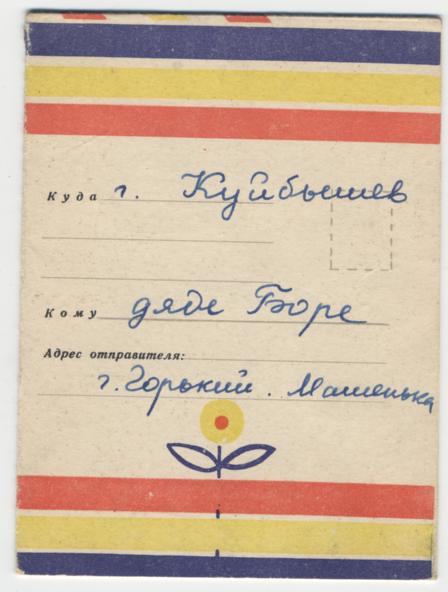 Куда г. Куйбышев
Кому дяде Боре
Адрес отправителя:
г. Горький. Машенька